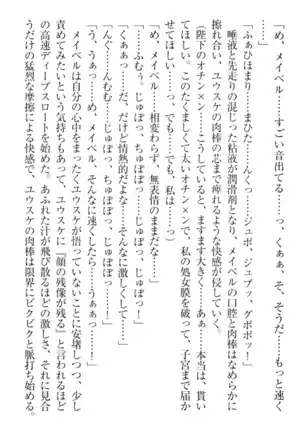 「め、メイベル……すごい音出てる……っ、くぁぁ、そ、そうだ……もっと」
「ふぁひほまり……まひた……んふっ……ジュボ、ジュプッ、グポポッ！」
唾液と先走りの混じった粘液が潤滑剤となり、メイベルの口腔と肉棒はなめらかに
擦れ合い、ユウスケの肉棒の芯まで痺れるような快感が侵していく。
（陛下のオチン×ン……こうしていると、ますます大きく……あぁ……本当は、貫い
てほしい。このたくましくて太いオチン×ンで、私の処女膜を破って、子宮まで届か
せてほしい……っ、でも……でも、私は……っ）
「め、メイベル……相変わらず、無表情のままだな……っ」
「……ふむぅ。じゅぽっ、ちゅぽぽっ……！」
「くぁぁっ……だ、だけど情熱的だな……そんなに激しくして……」
「んぐ……んむむ……じゅぽっ、じゅぽぽっ、ちゅぽぽっ……！」
「うぁ……め、メイベル、そんなに速くしたら……うぁぁっ……！」
メイベルは自分の心中をまったくユウスケが悟っていないことに安堵しつつ、少し
責めてみたいという気持ちもあって、ユウスケに「顔の残像が残る」と言われるほど
の高速ディープスロートを始めた。あふれた汁が飛び散るほどの激しさ、それに見合
うだけの猛烈な摩擦による快感で、ユウスケの肉棒は限界にビクビクと脈打ち始める。